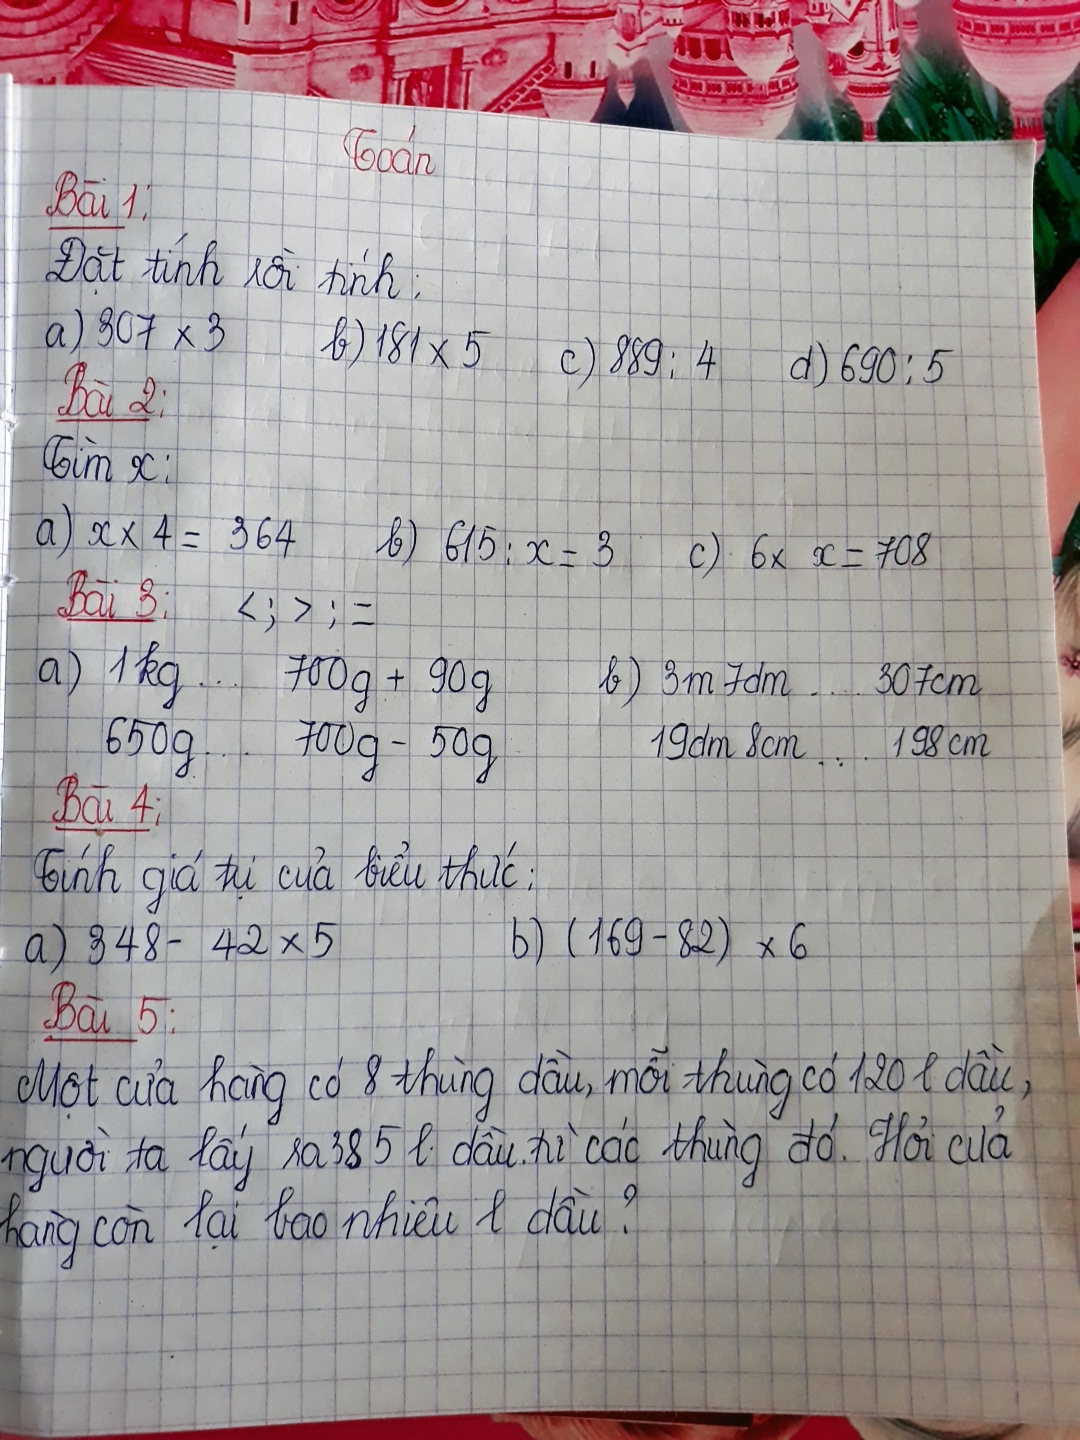 Toán
Bài 1:
Đặt tính rồi tính:
a) 307 x 3 b) 181 x 5 c) 889 : 4 d) 690 : 5
Bài 2:
Tìm x:
a) x x 4 = 364 b) 615 : x = 3 c) 6 x x = 708
Bài 3: < ; > ; =
a) 1kg ... 700g + 90g b) 3m 7dm .... 307cm
650g ... 700g - 50g 19dm 8cm ... 198cm
Bài 4:
Tính giá tụ của biểu thức:
a) 348 - 42 x 5 b) (169 - 82) x 6
Bài 5:
Một cửa hàng có 8 thùng dầu, mỗi thùng có 120 l dầu,
người ta lấy ra 385 l dầu từ các thùng đó. Hỏi cửa
hàng còn lại bao nhiêu l dầu ?